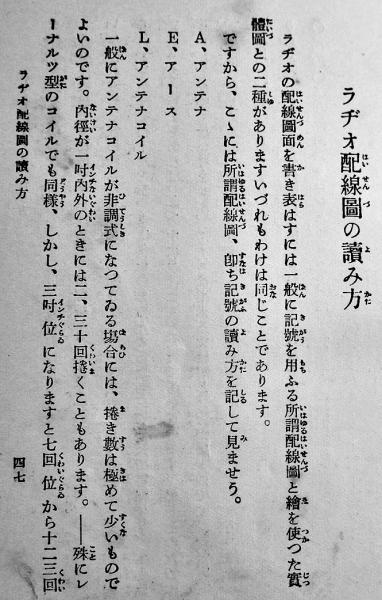 ラヂオ配線圖の讀み方
ラヂオの配線圖面を書き表はすには一般に記號を用ふる所謂配線圖と繪を使つた實
體圖との二種がありますいづれもわけは同じことであります。
ですから、こゝには所謂配線圖、卽ち記號の讀み方を記して見ませう。
A、アンテナ
E、アース
L、アンテナコイル
一般にアンテナコイルが非調式になつてゐる場合には、捲き數は極めて少いもので
よいのです。內徑が一吋內外のときには二、三十回捲くこともあります。――殊にレ
ーナルツ型のコイルでも同樣、しかし、三吋位になりますと七回位から十二三回
ラヂオ配線圖の讀み方
四七